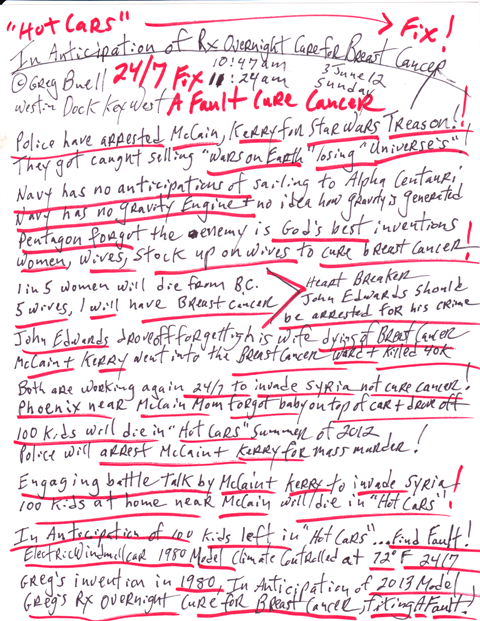 "Hot Cars" Fix!
In Anticipation of Rx Overnight Cure for Breast Cancer
©Greg Buell 24/7 Fix 10:47am 3 June 12
11:24am Sunday
Westin Dock Key West A Fault Cure Cancer
Police have arrested McCain, Kerry for Star Wars Treason!!
They got caught selling "Wars on Earth" losing "Universe's"!
Navy has no anticipations of sailing to Alpha Centauri
Navy has no gravity Engine + no idea how gravity is generated
Pentagon forgot the enemy is God's best inventions
Women, wives, stock up on wives to cure breast cancer!
1 in 5 women will die farm BC.
5 wives, 1 will have Breast cancer
Heart Breaker
John Edwards should
be arrested for his crime
John Edwards drove off forgetting his wife dying of Breast Cancer
McCain + Kerry went into the Breast Cancer ward + killed 40K
Both are working again 24/7 to invade Syria not cure cancer!
Phoenix near McCain Mom forgot baby on top of car + drove off
100 Kids will die in "Hot Cars" Summer of 2012
Police will arrest McCain + Kerry for mass murder!
Engaging battle talk by McCain + Kerry to invade Syria!
100 Kids at home near McCain will die in "Hot Cars"!
In Anticipation of 100 kids left in "Hot Cars"...Find Fault!
Electric Windmill car 1980 Model Climate Controlled at 72°F 24/7
Greg's invention in 1980, In Anticipation of 2013 Model!
Greg's Rx Overnight Cure for Breast Cancer, fixing A Fault!